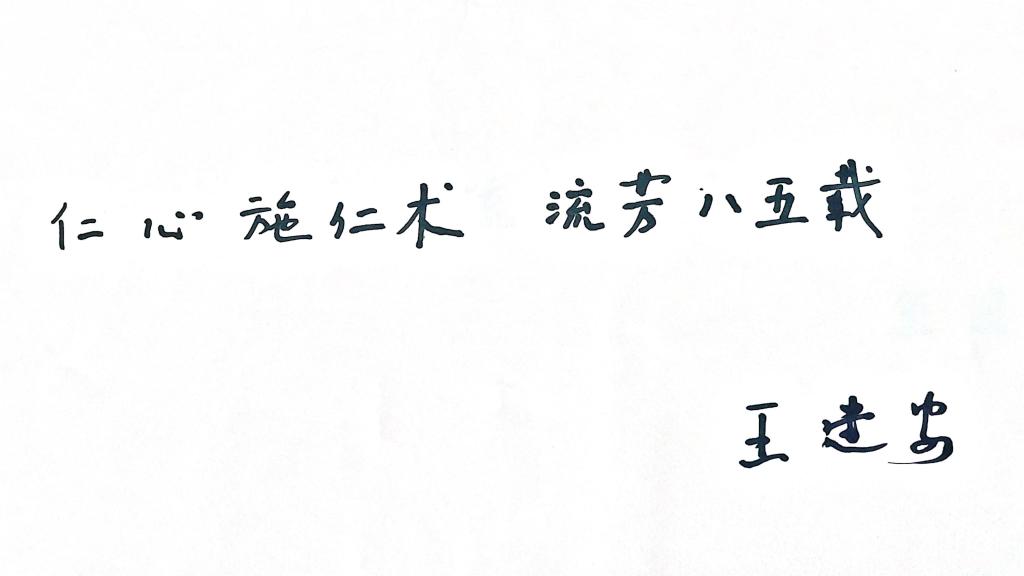 仁心施仁术 流芳八五载
王建安